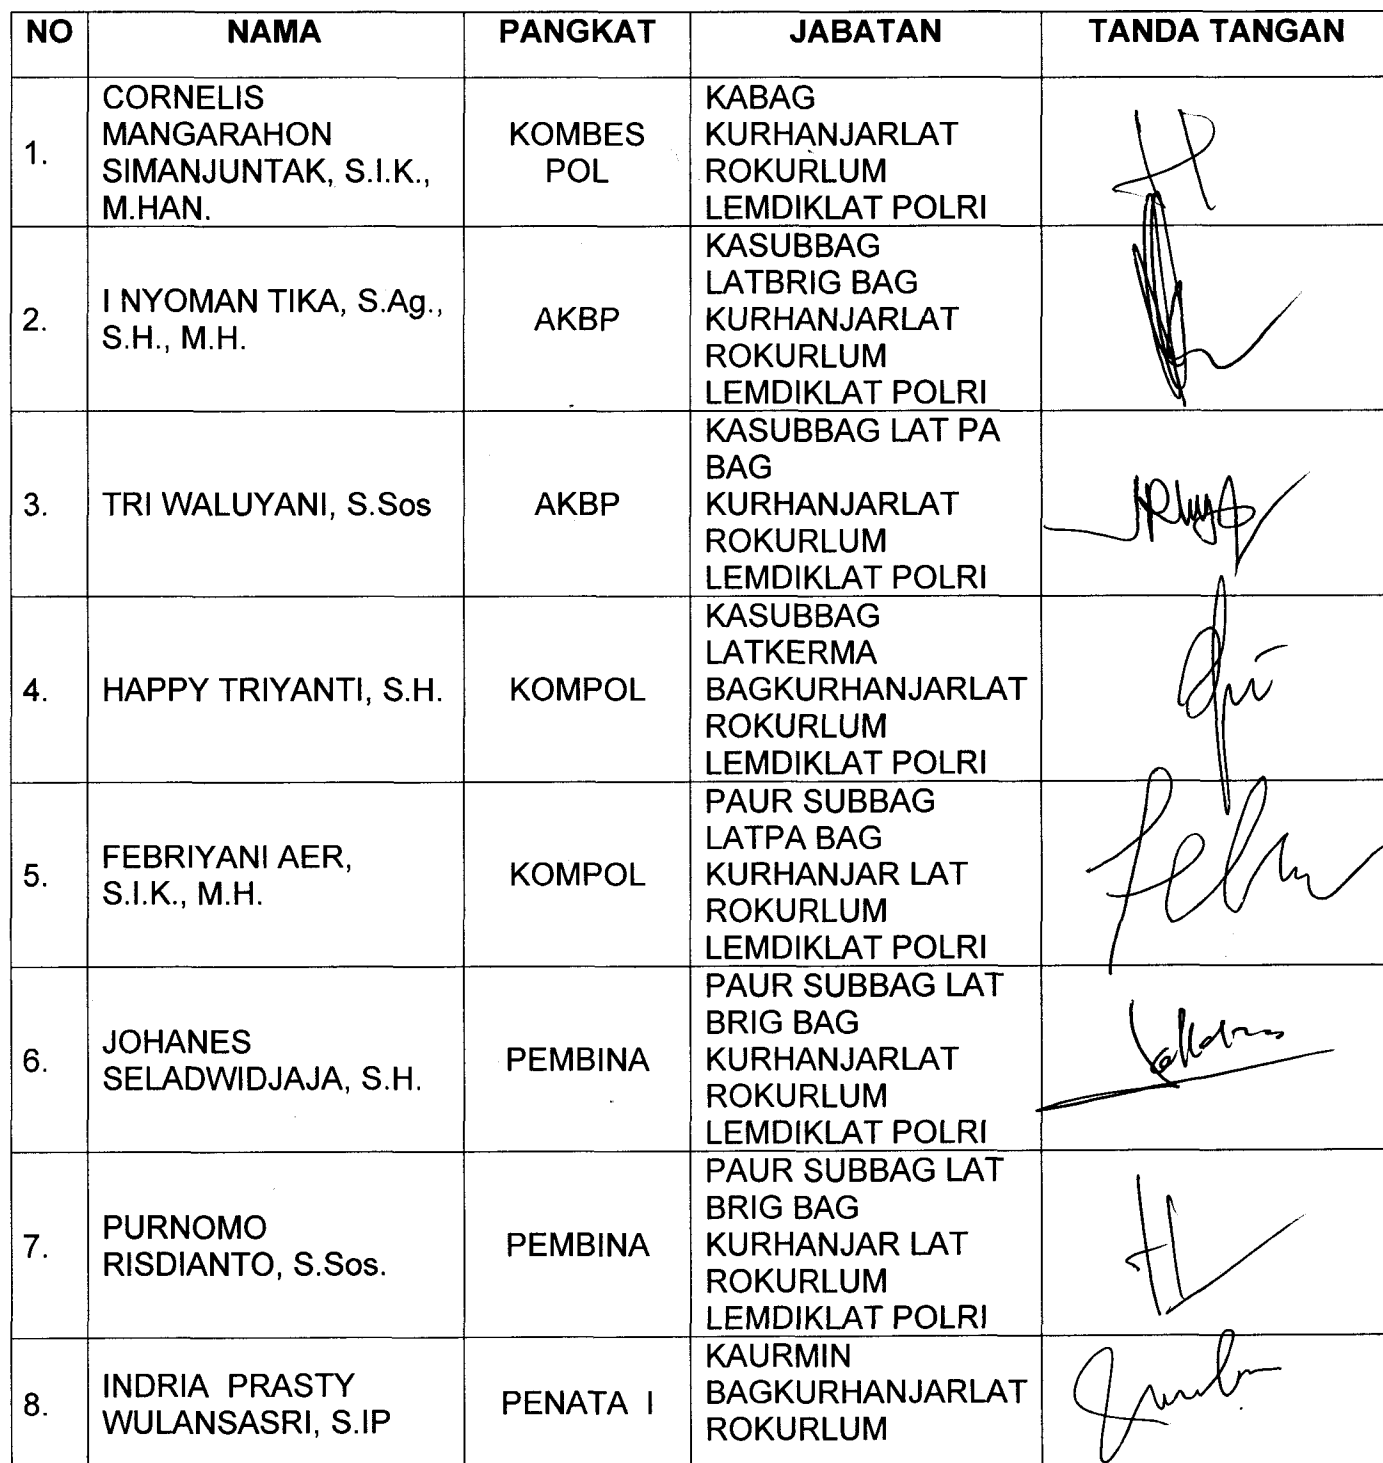 NO NAMA PANGKAT JABATAN TANDA TANGAN
1.
CORNELIS
MANGARAHON
SIMANJUNTAK, S.I.K.,
M.HAN.
KOMBES
POL
KABAG
KURHANJARLAT
ROKURLUM
LEMDIKLAT POLRI
2.
I NYOMAN TIKA, S.Ag.,
S.H., M.H.
AKBP
KASUBBAG
LATBRIG BAG
KURHANJARLAT
ROKURLUM
LEMDIKLAT POLRI
3.
TRI WALUYANI, S.Sos
AKBP
KASUBBAG LAT PA
BAG
KURHANJARLAT
ROKURLUM
LEMDIKLAT POLRI
4.
HAPPY TRIYANTI, S.H.
KOMPOL
KASUBBAG
LATKERMA
BAGKURHANJARLAT
ROKURLUM
LEMDIKLAT POLRI
5.
FEBRIYANI AER,
S.I.K., M.H.
KOMPOL
PAUR SUBBAG
LATPA BAG
KURHANJAR LAT
ROKURLUM
LEMDIKLAT POLRI
6.
JOHANES
SELADWIDJAJA, S.H.
PEMBINA
PAUR SUBBAG LAT
BRIG BAG
KURHANJARLAT
ROKURLUM
LEMDIKLAT POLRI
7.
PURNOMO
RISDIANTO, S.Sos.
PEMBINA
PAUR SUBBAG LAT
BRIG BAG
KURHANJAR LAT
ROKURLUM
LEMDIKLAT POLRI
8.
INDRIA PRASTY
WULANSASRI, S.IP
PENATA I
KAURMIN
BAGKURHANJARLAT
ROKURLUM